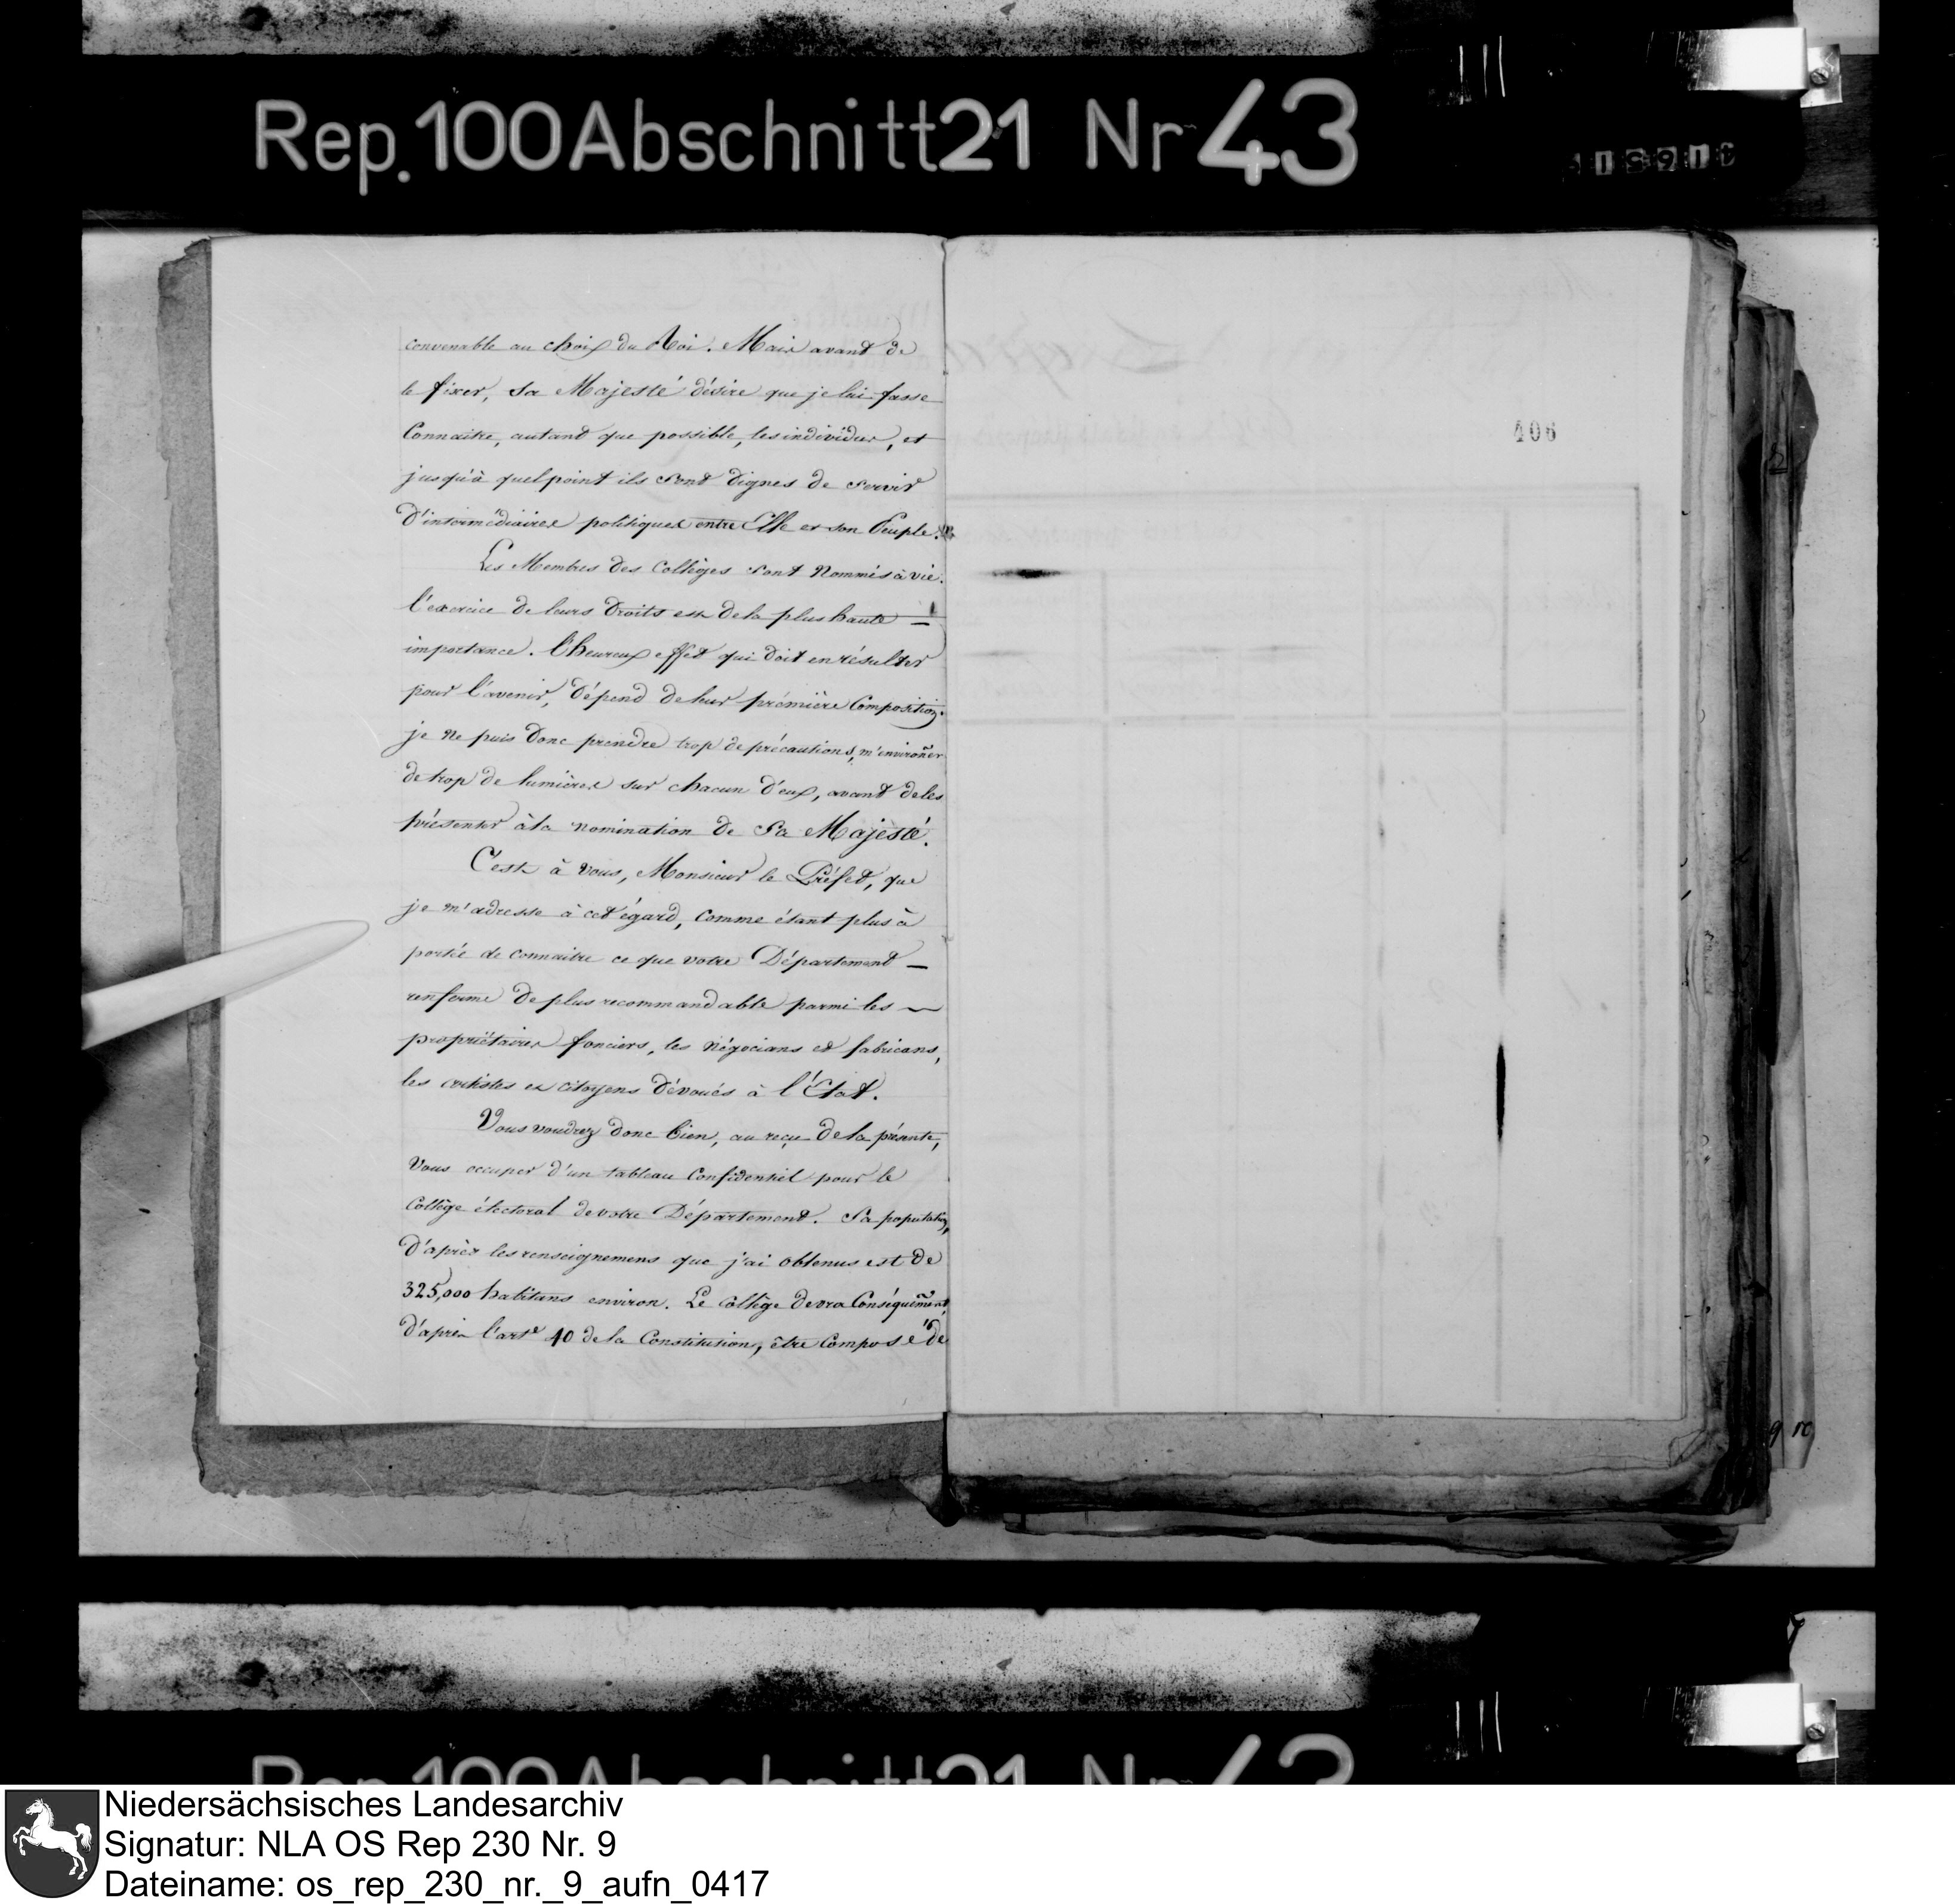 Rep. 100 Abschnitt 21 Nr 43
convenable au choix du Roi. Mais avant de
le fixer, Sa Majesté désire que je lui fasse
Connaitre, autant que possible, les individus, et
jusqu'à quel point ils sont dignes de servir
d'intermédiaires politiques entre Elle et son Peuple.
Les Membres des Collèges sont Nommés à vie.
l'exercice de leurs Droits est de la plus haute —
importance. l'heureux effet qui doit en résulter
pour l'avenir, dépend de leur prémière Composition.
je ne puis donc prendre trop de précautions, m'environer
de trop de lumières sur chacun d'eux, avant de les
présenter à la nomination de Sa Majesté.
C'est à vous, Monsieur le Préfet, que
je m'adresse à cet égard, comme étant plus à
portée de connaitre ce que votre Département —
renferme de plus recommandable parmi les —
propriétaires fonciers, les négocians et fabricans,
les artistes et citoyens dévoués à l'État.
Vous voudrez donc bien, au reçu de la présente,
Vous occuper d'un tableau Confidentiel pour le
Collège électoral de votre Département. Sa population,
d'après les renseignemens que j'ai obtenus est de
325,000 habitans environ. Le Collège devra Conséquem̃ent,
d'après l'art.e 40 de la Constitution, être Composé de
406
Rep. 100 Abschnitt 21 Nr 43
Niedersächsisches Landesarchiv
Signatur: NLA OS Rep 230 Nr. 9
Dateiname: os_rep_230_nr._9_aufn_0417